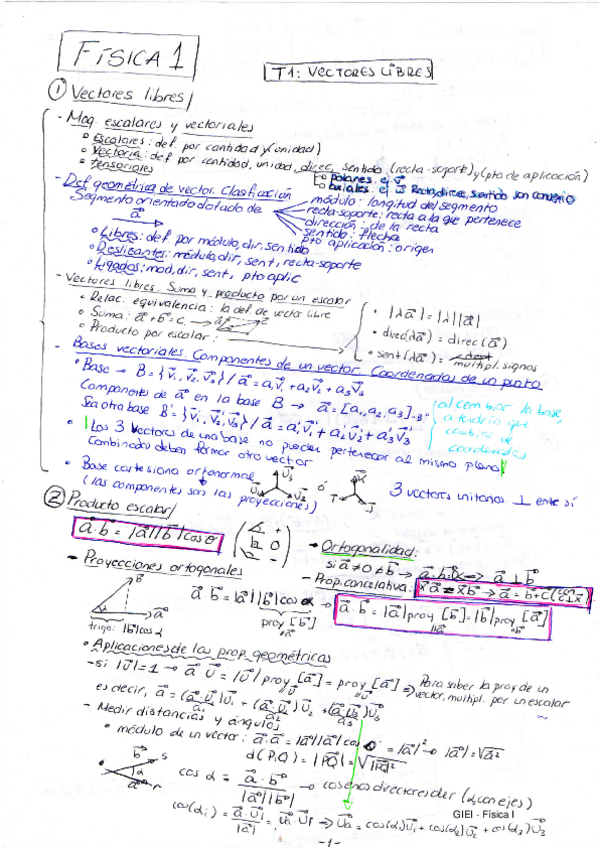 FÍSICA 1
T1: VECTORES LIBRES
① Vectores libres
- Mag. escalares y vectoriales
• Escalares: def. por cantidad y (unidad)
• Vectoria: def por cantidad, unidad, direc, sentido (recta-soporte) y (pto de aplicación)
• tensoriales
polares
axiales
- Def geométrica de vector. Clasificación
Segmento orientado dotado de
a⃗
módulo: longitud del segmento
recta-soporte: recta a la que pertenece
dirección: de la recta
sentido: flecha
pto aplicación: origen
• Libres: def. por módulo, dir, sentido
• Deslizantes: módulo, dir, sent, recta-soporte
• Ligados: mod, dir, sent, pto aplic
- Vectores libres. Suma y producto por un escalar
• Relac. equivalencia: la def. de vector libre
• Suma: a⃗ + b⃗ = c⃗
• Producto por escalar:
• |λa⃗| = |λ||a⃗|
• direc(λa⃗) = direc(a⃗)
• sent(λa⃗) = multipl. signos
- Bases vectoriales. Componentes de un vector. Coordenadas de un punto
• Base → B = {v⃗₁, v⃗₂, v⃗₃} / a⃗ = a₁v⃗₁ + a₂v⃗₂ + a₃v⃗₃
Componentes de a⃗ en la base B → a⃗ = [a₁, a₂, a₃]B
Sea otra base B' = {v⃗₁', v⃗₂', v⃗₃'} / a⃗ = a₁'v⃗₁' + a₂'v⃗₂' + a₃'v⃗₃'
al cambiar la base,
cambiar de
coordenadas
• Los 3 vectores de una base no pueden pertenecer al mismo plano
Combinados deben formar otro vector
• Base cartesiana ortonormal
(las componentes son las proyecciones)
3 vectores unitarios ⊥ entre sí
② Producto escalar
a⃗·b⃗ = |a⃗||b⃗|cosθ
- Ortogonalidad:
si a⃗ ≠ 0 ≠ b⃗ → a⃗·b⃗ = 0 <=> a⃗ ⊥ b⃗
- Prop. cancelativa:
- Proyecciones ortogonales
b⃗
a⃗
trigo: |b⃗|cosα
a⃗·b⃗ = |a⃗||b⃗|cosα →
proy [b⃗]
a⃗·b⃗ = |a⃗|proy [b⃗] = |b⃗|proy [a⃗]
• Aplicaciones de las prop. geométricas
- si |u⃗| = 1 → a⃗·u⃗ = |u⃗| proy [a⃗] = proy [a⃗] => Para saber la proy de un
vector, multipl. por un escalar
es decir, a⃗ = (a⃗·u⃗₁)u⃗₁ + (a⃗·u⃗₂)u⃗₂ + (a⃗·u⃗₃)u⃗₃
a₁ a₂ a₃
- Medir distancias y ángulos
• módulo de un vector: a⃗·a⃗ = |a⃗||a⃗| cos 0 = |a⃗|² → |a⃗| = √a⃗²
d(P,Q) = |PQ⃗| = √PQ⃗²
b⃗ s
α
a⃗ r
cos α = a⃗·b⃗ / |a⃗||b⃗| → cosenos directores der (α con ejes)
cos(αi) = a⃗·u⃗i / |a⃗| = u⃗a·u⃗i => u⃗a = cos(α₁)u⃗₁ + cos(α₂)u⃗₂ + cos(α₃)u⃗₃
GIEI - Física I
-1-